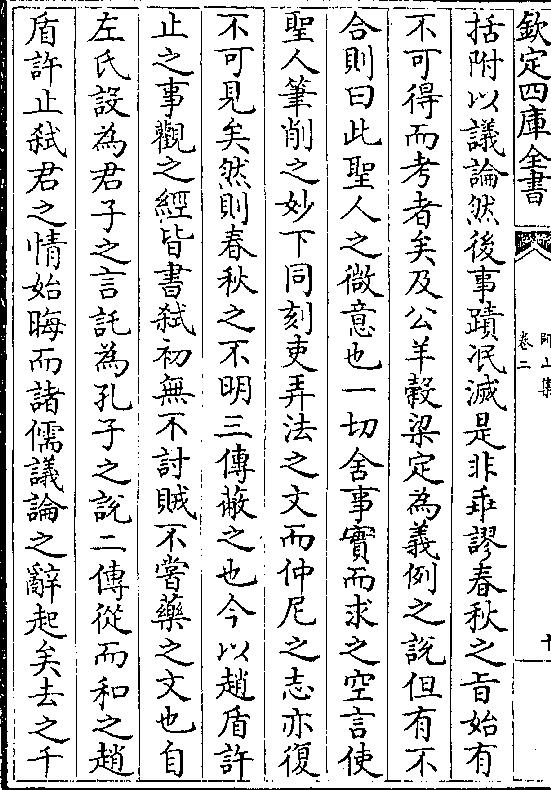 欽定四庫全書
卷二
括附以議論然後事蹟泯滅是非乖謬春秋之㫖始有
不可得而考者矣及公羊糓梁定為義例之說但有不
合則曰此聖人之微意也一切舍事實而求之空言使
聖人筆削之妙下同刻吏弄法之文而仲尼之志亦復
不可見矣然則春秋之不明三傳蔽之也今以趙盾許
止之事觀之經皆書弑初無不討賊不嘗藥之文也自
左氏設為君子之言託為孔子之說二傳從而和之趙
盾許止弑君之情始晦而諸儒議論之辭起矣去之千